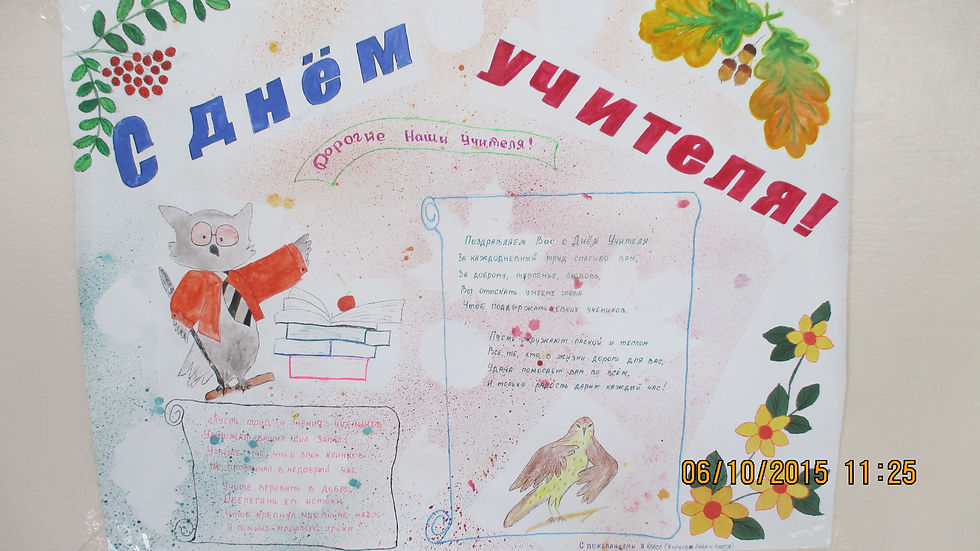 С днём учителя!
Дорогие наши учителя!
Поздравляем Вас с Днём Учителя
За каждодневный труд спасибо вам,
За доброту, терпенье, любовь,
Вы отыскать умеете слова
Чтоб поддержать своих учеников.
Пусть окружают лаской и теплом
Все, те, кто в жизни дороги для вас,
Удача помогает вам во всём,
И только радость дарит каждый час!
Пусть труд и гений учеников
ваших сил запас!
чтоб звон клинков
Не прозвучал в недобрый час
Учите веровать в добро,
Оберегать его истоки
Чтоб крепнул мир
И помнил прошлого уроки!
С пожеланиями 9 класс
06/10/2015 11:25